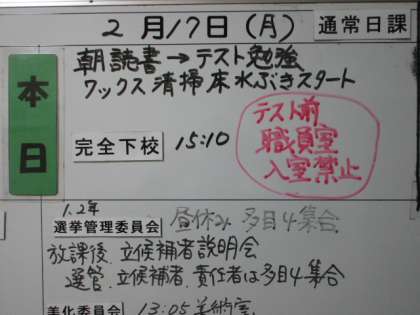 2月17日(月) 通常日課
本日
朝読書→テスト勉強
ワックス清掃床水ぶきスタート
完全下校 15:10
テスト前
職員室
入室禁止
1.2年
選挙管理委員会 昼休み 多目4集合
放課後、立候補者説明会
選管、立候補者、責任者は多目4集合
美化委員会 13:05 美術室